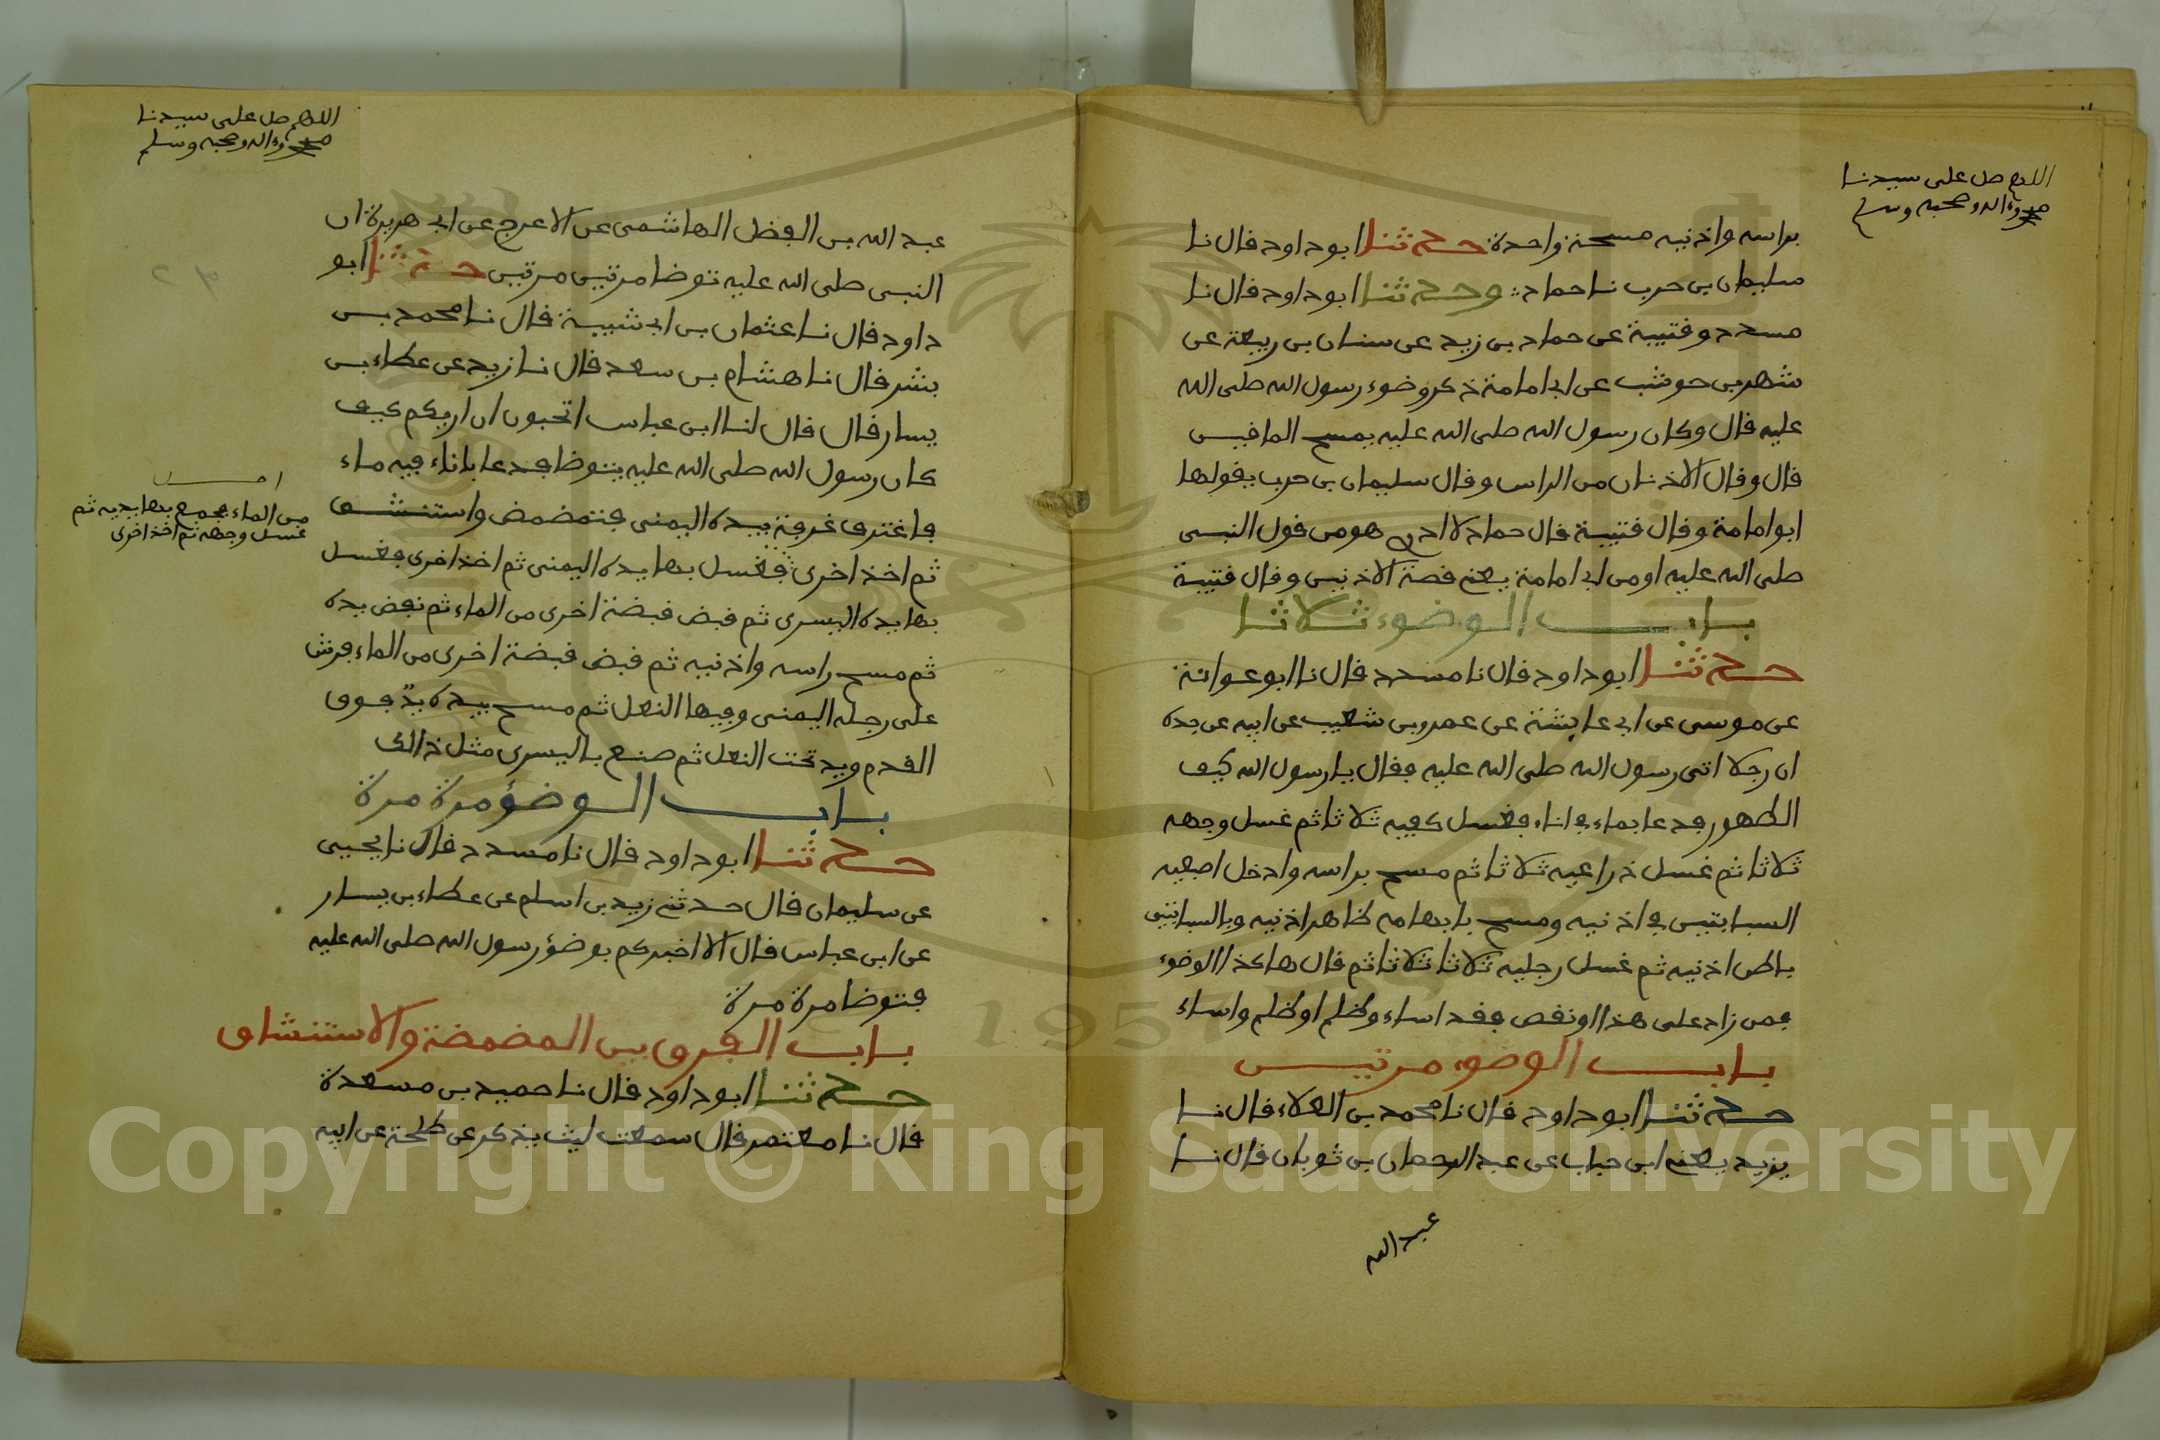 اللهم صل على سيدنا
محمد وءاله وصحبه وسلم
براسه واذنيه مسحة واحدة حدثنا ابو داود قال نا
سليمان بن حرب نا حماد وحدثنا ابو داود قال نا
مسدد وقتيبة عن حماد بن زيد عن سنان بن ربيعة عن
شهر بن حوشب عن ابي امامة ذكر وضوء رسول الله صلى الله
عليه قال وكان رسول الله صلى الله عليه يمسح الماقين
قال وقال الاذنان من الراس وقال سليمان بن حرب يقولها
ابو امامة وقال قتيبة قال حماد لا ادري هو من قول النبي
صلى الله عليه او من ابي امامة يعني قصة الاذنين وقال قتيبة
باب الوضوء ثلاثا
حدثنا ابو داود قال نا مسدد قال نا ابو عوانة
عن موسى عن ابي عايشة عن عمرو بن شعيب عن ابيه عن جده
ان رجلا اتى رسول الله صلى الله عليه فقال يا رسول الله كيف
الطهور فدعا بماء في اناء فغسل كفيه ثلاثا ثم غسل وجهه
ثلاثا ثم غسل ذراعيه ثلاثا ثم مسح براسه وادخل اصبعيه
السبابتين في اذنيه ومسح بابهامه ظاهر اذنيه وبالسبابتين
باطن اذنيه ثم غسل رجليه ثلاثا ثلاثا ثم قال هاكذا الوضوء
فمن زاد على هذا او نقص فقد اساء وظلم او ظلم واساء
باب الوضوء مرتين
حدثنا ابو داود قال نا محمد بن العلاء قال نا
يزيد يعني ابن حباب عن عبد الرحمان بن ثوبان قال نا
عبد الله
اللهم صل على سيدنا
محمد وءاله وصحبه وسلم
عبد الله بن الفضل الهاشمي عن الاعرج عن ابي هريرة ان
النبي صلى الله عليه توضا مرتين مرتين حدثنا ابو
داود قال نا عثمان بن ابي شيبة قال نا محمد بن
بشر قال نا هشام بن سعد قال نا زيد عن عطاء بن
يسار قال قال لنا ابن عباس اتحبون ان اريكم كيف
كان رسول الله صلى الله عليه يتوضا فدعا باناء فيه ماء
فاغترف غرفة بيده اليمنى فتمضمض واستنشق
ثم اخذ اخرى فغسل بها يده اليمنى ثم اخذ اخرى فغسل
بها يده اليسرى ثم قبض قبضة اخرى من الماء ثم نفض يده
ثم مسح راسه واذنيه ثم قبض قبضة اخرى من الماء فرش
على رجله اليمنى وفيها النعل ثم مسح بيده يد فوق
القدم ويد تحت النعل ثم صنع باليسرى مثل ذالك
باب الوضؤ مرة مرة
حدثنا ابو داود قال نا مسدد قال نا يحيى
عن سليمان قال حدثني زيد بن اسلم عن عطاء بن يسار
عن ابن عباس قال الا اخبركم بوضؤ رسول الله صلى الله عليه
فتوضا مرة مرة
باب الفرق بين المضمضة والاستنشاق
حدثنا ابو داود قال نا حميد بن مسعدة
قال نا معتمر قال سمعت ليث يذكر عن طلحة عن ابيه
من الماء فجمع بها يديه ثم
غسل وجهه ثم اخذ اخرى
1957
Copyright © King Saud University